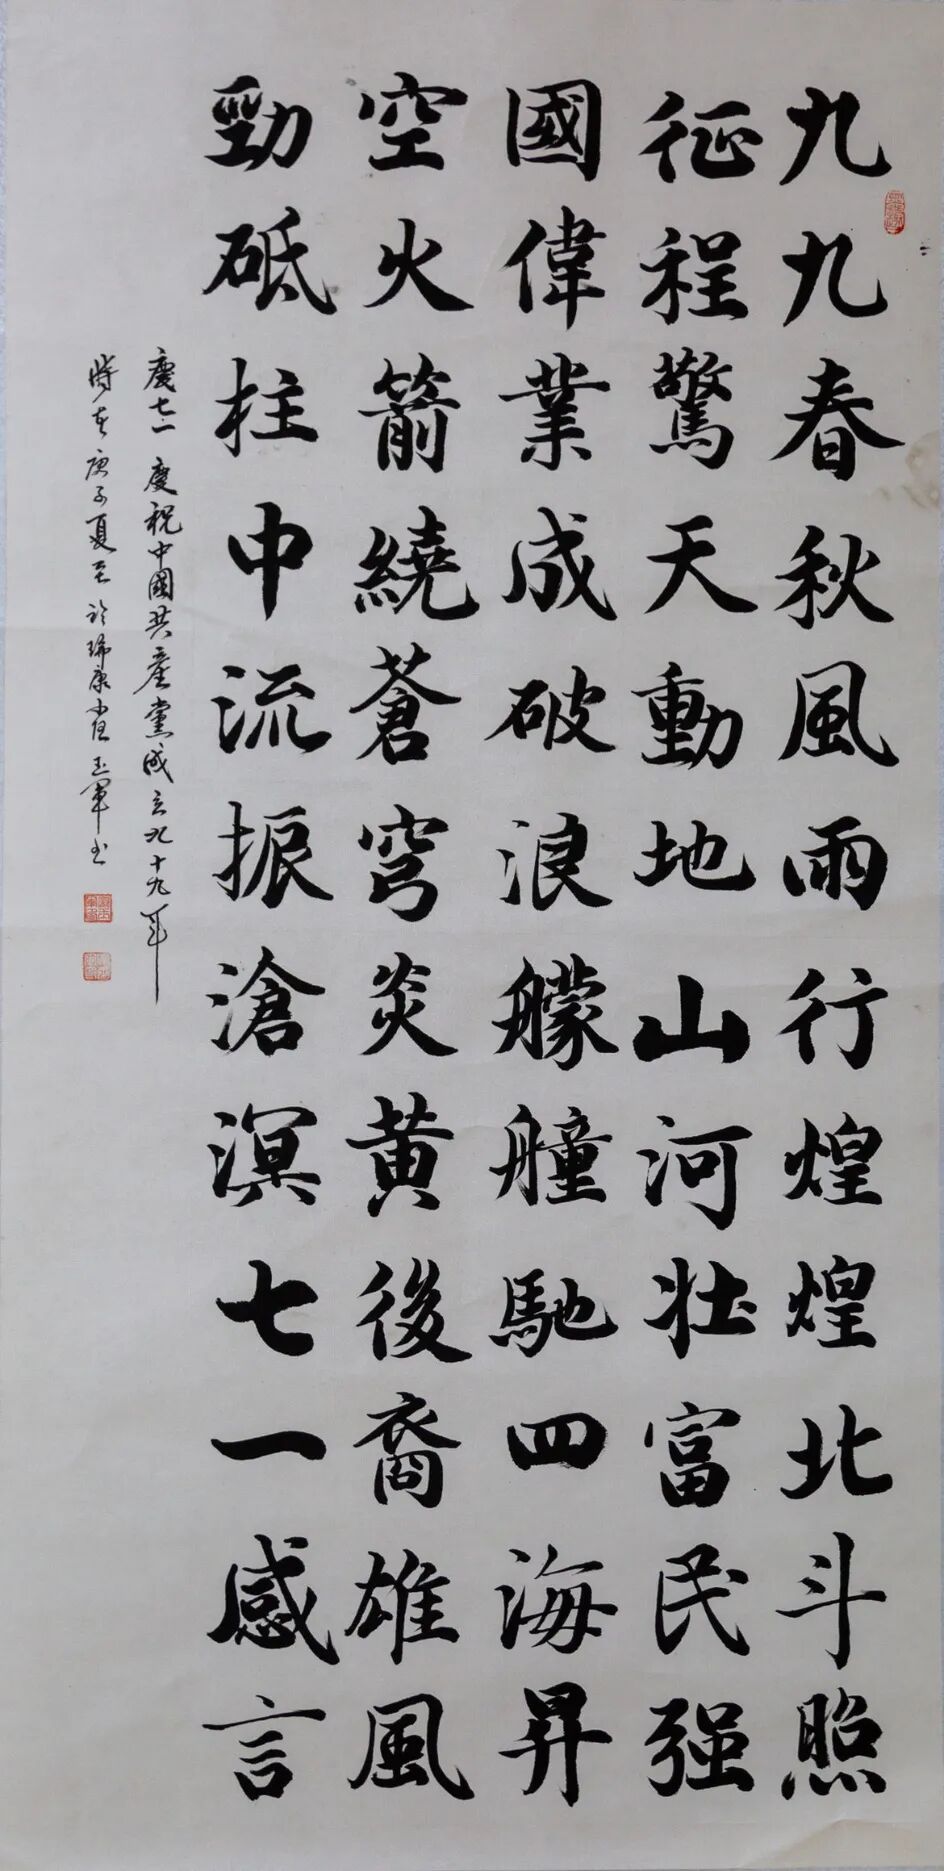 九九春秋風雨行煌煌北斗照
征程驚天動地山河壯富民强
國偉業成破浪艨艟馳四海昇
空火箭繞蒼穹炎黄後裔雄風
勁砥柱中流振滄溟七一感言
慶七一 慶祝中國共產黨成立九十九年
時在庚子夏至於瑞康 玉軍书